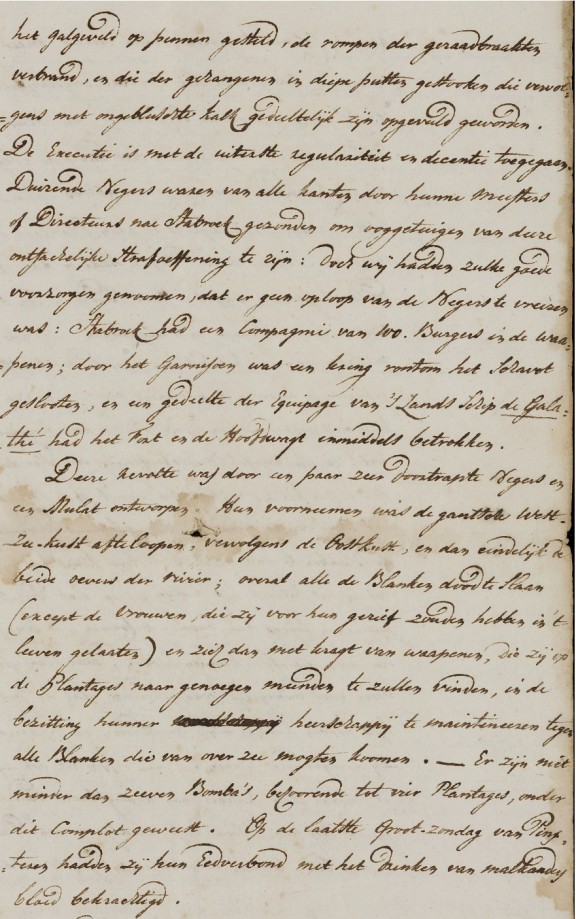 het galgeveld op pennen gesteld, de rompen der geraadbraakten
verbrand, en die der gehangenen in diepe putten gestooken die vervol-
=gens met ongebluschte kalk gedeeltelijk zijn opgevuld geworden.
De Executie is met de uiterste regulariteit en decentie toegegaan.
Duizende Negers waren van alle kanten door hunne Meesters
of Directeurs nae Stabroek gezonden om ooggetuigen van deeze
ontsachelijke Strafoeffening te zijn: doch wij hadden zulke goede
voorzorgen genoomen, dat er geen oploop van de Negers te vreezen
was: Stabroek had een Compagnie van 100. Burgers in de waa=
=penen; door het Garnisoen was een kring rontom het Schavot
geslooten, en een gedeelte der Equipage van 's Lands Schip de Gala=
=thé had het Fort en de Hoofdwagt inmiddels betrokken.
Deeze revolte was door een paar zeer doortrapte Negers en
een Mulat ontworpen. Hun voorneemen was de gantsche West-
Zee-kust afteloopen, vervolgens de Oostkust, en dan eindelijk de
beide oevers der rivier; overal alle de Blanken dood te slaan
(except de Vrouwen, die zij voor hun gerief zouden hebben in 't
leeven gelaaten) en zich dan met kragt van waapenen, die zij op
de Plantages naar genoegen meenden te zullen vinden, in de
bezitting hunner heerschappij te maintineeren tegen
alle Blanken die van over zee mogten koomen. — Er zijn niet
minder dan zeeven Bomba's, behoorende tot vier Plantages, onder
dit Complot geweest. Op de laatste Groot-zondag van Pinx=
=teren hadden zij hun Eedverbond met het drinken van malkanders
bloed bekrachtigd.